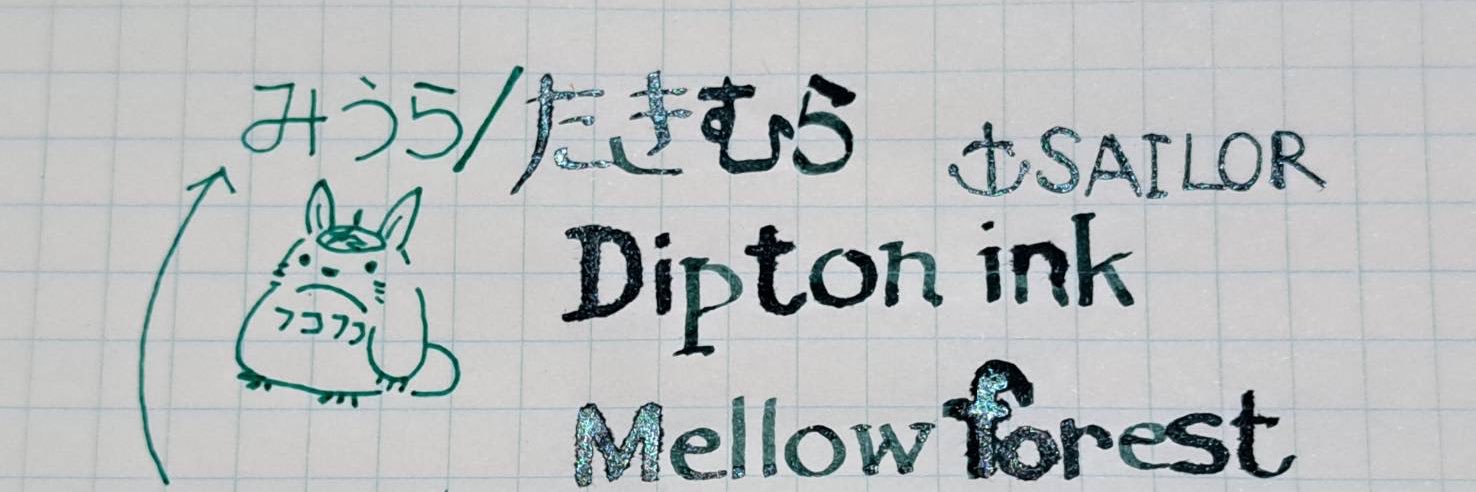 みうら/たきむら
SAILOR
フコフコ
Dipton ink
Mellow forest